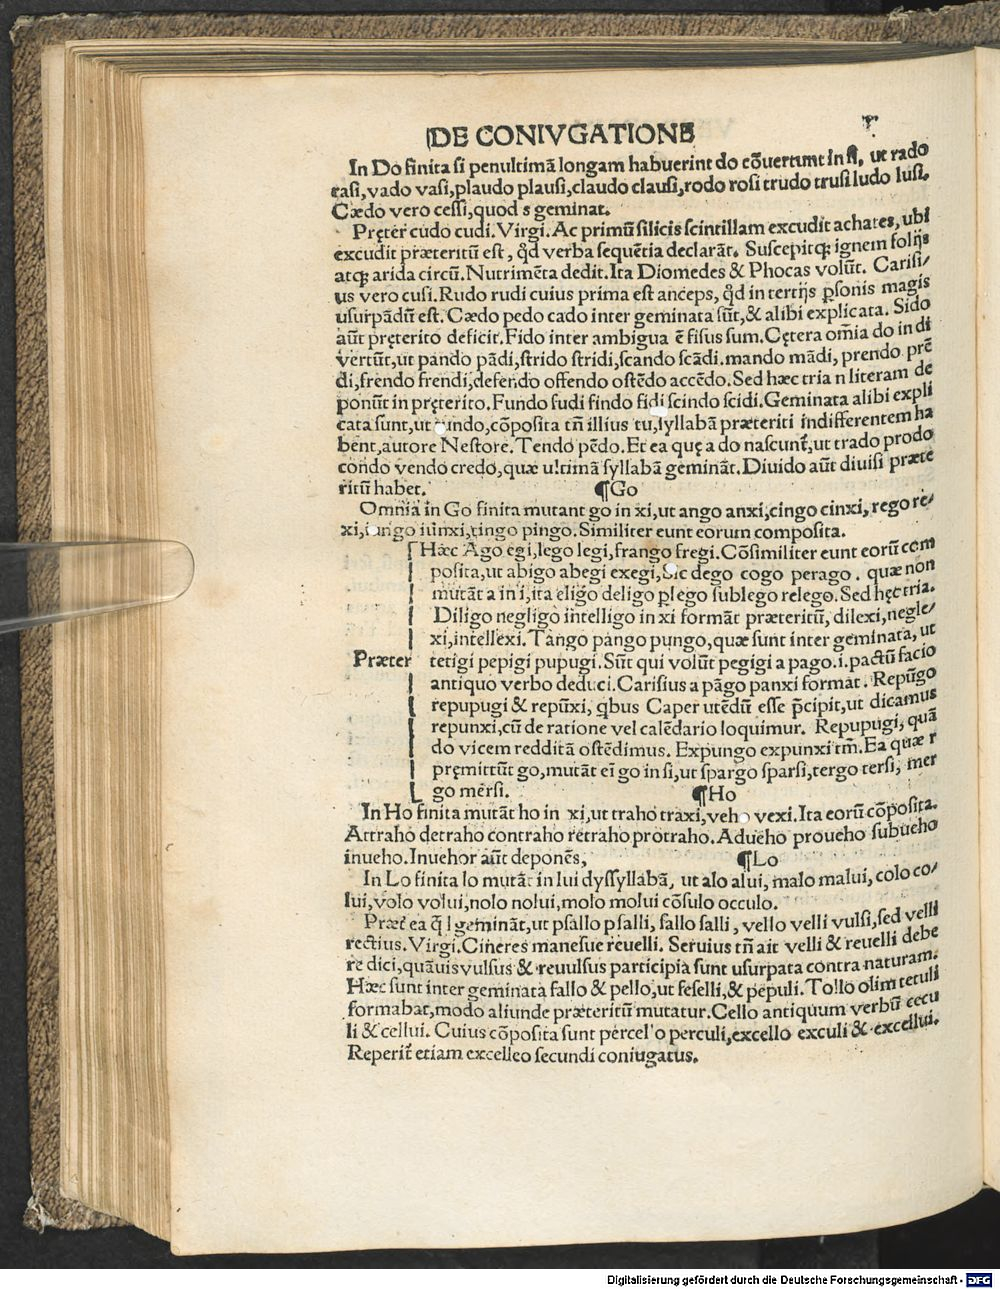 DE CONIVGATIONE
In Do finita si penultimā longam habuerint do cōuertunt in si, ut rado
rasi, vado vasi, plaudo plausi, claudo clausi, rodo rosi trudo trusi ludo lusi.
Cædo vero cessi, quod s geminat.
Pręter cudo cudi. Virgi. Ac primū silicis scintillam excudit achates, ubi
excudit præteritū est, qd verba sequētia declarāt. Suscepitq; ignem folijs
atq; arida circū. Nutrimēta dedit. Ita Diomedes & Phocas volūt. Carisi/
us vero cusi. Rudo rudi cuius prima est anceps, qd in tertijs psonis magis
usurpādū est. Cædo pedo cado inter geminata sūt, & alibi explicata. Sido
aūt pręterito deficit. Fido inter ambigua ē fisus sum. Cętera om̄ia do in di
vertūt, ut pando pādi, strido stridi, scando scādi. mando mādi, prendo prē
di, frendo frendi, defendo offendo ostēdo accēdo. Sed hæc tria n literam de
ponūt in pręterito. Fundo fudi findo fidi scindo scidi. Geminata alibi expli
cata sunt, ut tundo, cōposita tñ illius tu, syllabā præteriti indifferentem ha
bent, autore Nestore. Tendo pēdo. Et ea quę a do nascunt̄, ut trado prodo
condo vendo credo, quæ ultimā syllabā gemināt. Diuido aūt diuisi præte
ritū habet. ¶Go
Omnia in Go finita mutant go in xi, ut ango anxi, cingo cinxi, rego re/
xi, iungo iunxi, tingo pingo. Similiter eunt eorum composita.
Hæc Ago egi, lego legi, frango fregi. Cōsimiliter eunt eorū com
posita, ut abigo abegi exegi, sic dego cogo perago. quæ non
mutāt a in i, ita eligo deligo plego sublego relego. Sed hęc tria.
Diligo negligo intelligo in xi formāt præteritū, dilexi, negle/
xi, intellexi. Tango pango pungo, quæ sunt inter geminata, ut
Præter tetigi pepigi pupugi. Sūt qui volūt pegigi a pago. i. pactū facio
antiquo verbo deduci. Carisius a pāgo panxi format. Repūgo
repupugi & repūxi, qbus Caper utēdū esse pcipit, ut dicamus
repunxi, cū de ratione vel calēdario loquimur. Repupugi, quā
do vicem redditā ostēdimus. Expungo expunxi tm̄. Ea quæ r
pręmittūt go, mutāt ei go in si, ut spargo sparsi, tergo tersi, mer
go mersi. ¶Ho
In Ho finita mutāt ho in xi, ut traho traxi, veho vexi. Ita eorū cōposita.
Attraho detraho contraho retraho protraho. Adueho proueho subueho
inueho. Inuehor aūt deponēs, ¶Lo
In Lo finita lo mutāt in lui dyssyllabā, ut alo alui, malo malui, colo co/
lui, volo volui, nolo nolui, molo molui cōsulo occulo.
Præt̄ ea q̄ l gemināt, ut psallo psalli, fallo falli, vello velli vulsi, sed velli
rectius. Virgi. Cineres manesue reuelli. Seruius tñ ait velli & reuelli debe
re dici, quāuis vulsus & reuulsus participia sunt usurpata contra naturam.
Hæc sunt inter geminata fallo & pello, ut fefelli, & pepuli. Tollo olim tetuli
formabat, modo aliunde præteritū mutatur. Cello antiquum verbū cecu
li & cellui. Cuius cōposita sunt percello perculi, excello exculi & excellui.
Reperit̄ etiam excelleo secundi coniugatus.
Digitalisierung gefördert durch die Deutsche Forschungsgemeinschaft - DFG